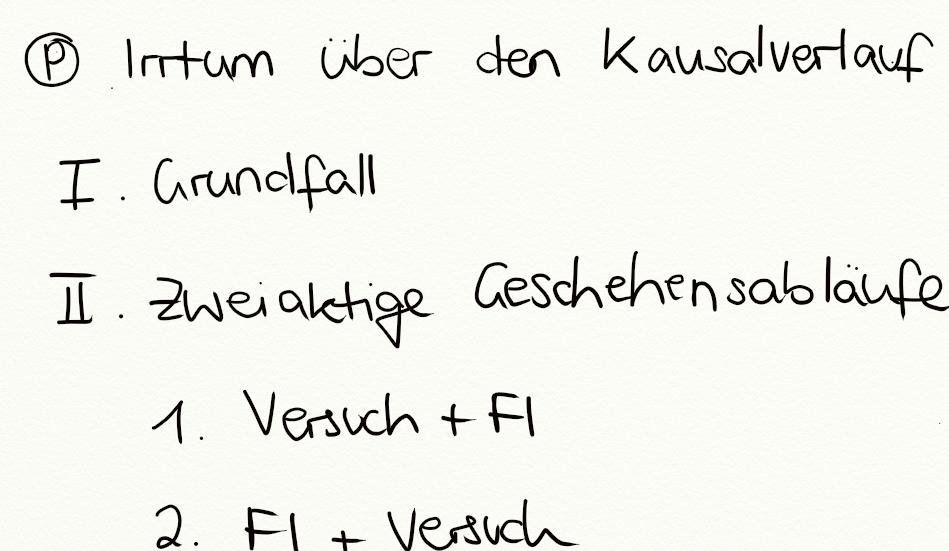 Ⓟ Irrtum über den Kausalverlauf
I. Grundfall
II. Zweiaktige Geschehensabläufe
1. Versuch + Fl
2. Fl + Versuch